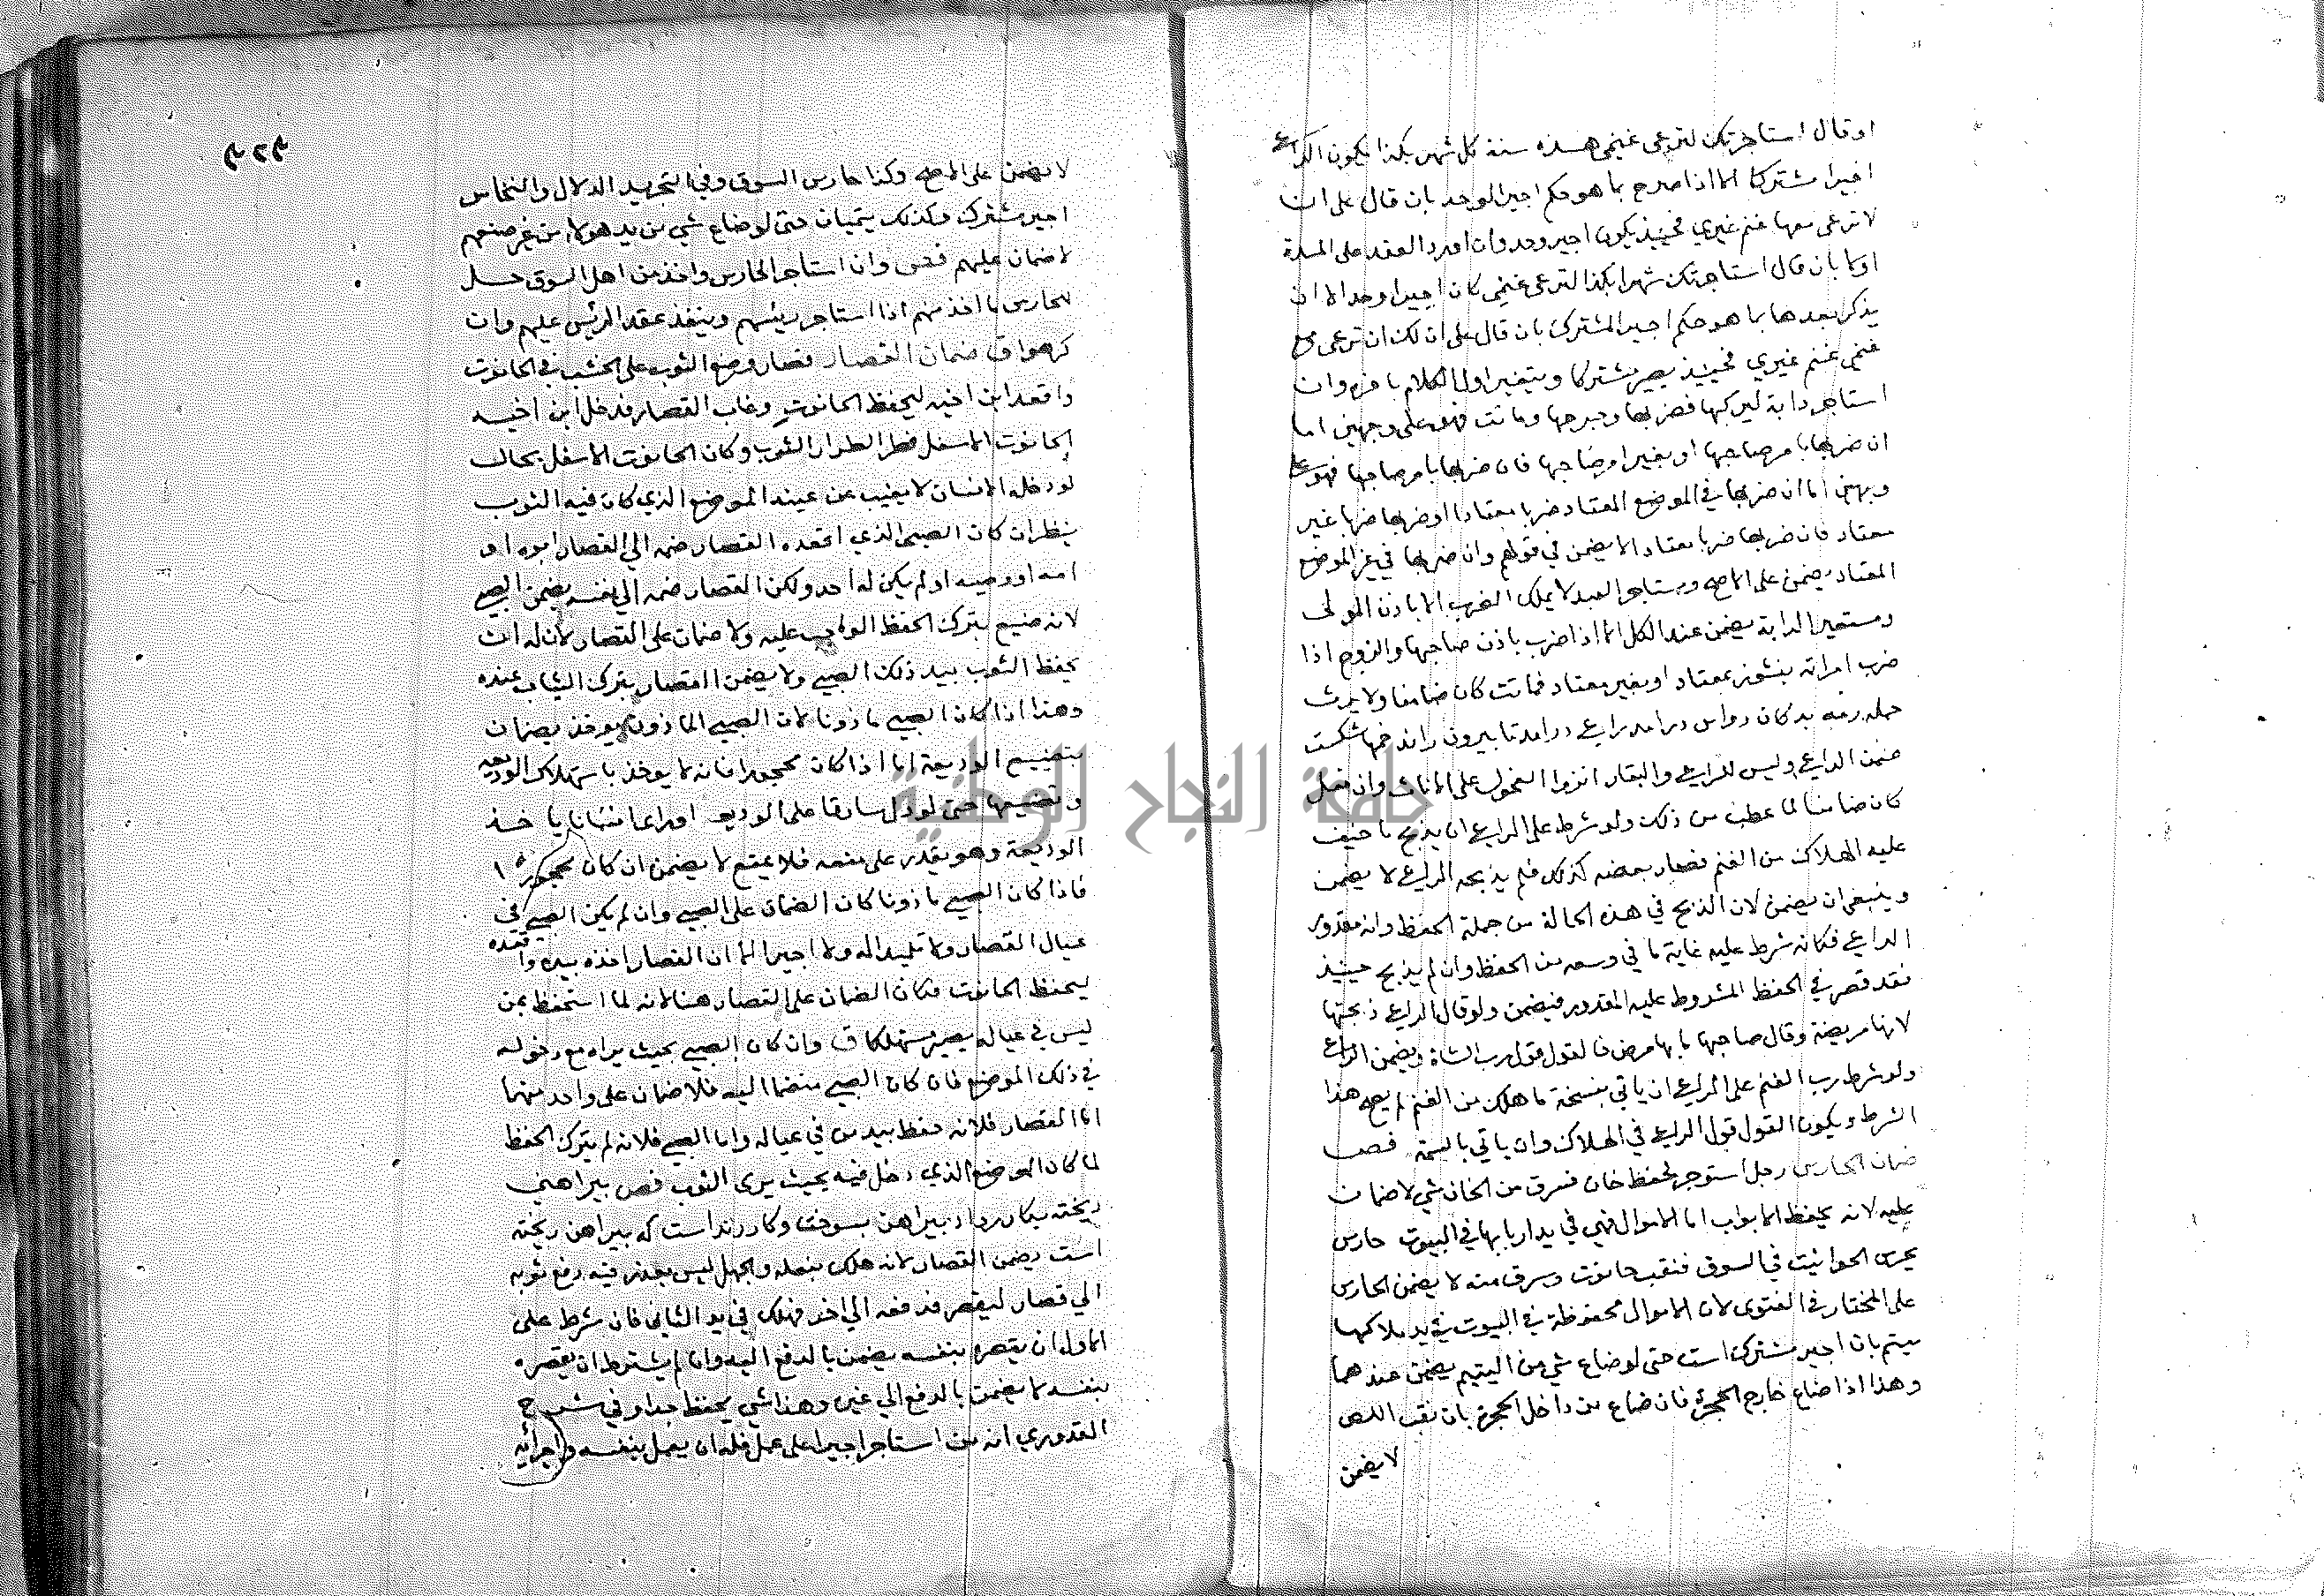 او قال استاجرتك لترعى غنمى هذه سنة كل شهر بكذا يكون الراعي
اجيرا مشتركا الا اذا صرح بما هو حكم اجير الوحد بان قال على ان
لا ترعى معها غنم غيري فحينئذ يكون اجير وحد وان اورد العقد على المدة
اولا بان قال استاجرتك شهرا بكذا لترعى غنمي كان اجيرا وحد الا ان
يذكر بعدها ما هو حكم اجير المشترك بان قال على ان لك ان ترعى مع
غنمي غنم غيري فحينئذ يصير مشتركا ويتغير اول الكلام باخره وان
استاجر دابة ليركبها فضربها وجرحها وماتت فهو على وجهين اما
ان ضربها بامر صاحبها او بغير امر صاحبها فان ضربها بامر صاحبها فهو على
وجهين اما ان ضربها في الموضع المعتاد ضربا معتادا او ضربها ضربا غير
معتاد فان ضربها ضربا معتادا لا يضمن في قولهم وان ضربها في غير الموضع
المعتاد يضمن على الاصح ومستاجر العبد لا يملك الضرب الا باذن المولى
ومستعير الدابة يضمن عند الكل الا اذا ضرب باذن صاحبها والزوج اذا
ضرب امراته بنشوز بمعتاد او بغير معتاد فماتت كان ضامنا ولا يرث
دكان رواس درامد راعي درامد تا بيرون راند خمها شكست
ضمن الراعي وليس للراعي والبقار انزوا الفحول على الاناث وان فعل
كان ضامنا لما عطب من ذلك ولو شرط على الراعي ان يذبح ما خيف
عليه الهلاك من الغنم فصار بعضه كذلك فلم يذبحه الراعي لا يضمن
وينبغي ان يضمن لان الذبح في هذه الحالة من جملة الحفظ وانه مقدور
الراعي فكانه شرط عليه غاية ما في وسعه من الحفظ وان لم يذبح حينئذ
فقد قصر في الحفظ المشروط عليه المقدور فيضمن ولو قال الراعي ذبحتها
لانها مريضة وقال صاحبها ما بها مرض فالقول قول رب الشاة ويضمن الراعي
ولو شرط رب الغنم على الراعي ان ياتي بنسخة ما هلك من الغنم لم يصح هذا
الشرط ويكون القول قول الراعي في الهلاك وان ياتي بالسمة فص
ضمان الحارس رجل استوجر لحفظ خان فسرق من الخان شي لا ضمان
عليه لانه يحفظ الابواب اما الاموال فهي في يد اربابها في البيوت حارس
يحرس الحوانيت في السوق فنقب حانوت وسرق منه لا يضمن الحارس
على المختار في الفتوى لان الاموال محفوظة في البيوت في يد ملاكها
يتيم بان اجير مشترك است حتى لو ضاع شي من اليتيم يضمن عندهما
وهذا اذا ضاع خارج الحجرة فان ضاع من داخل الحجرة بان نقب اللص
لا يضمن
٣٢٣
لا يضمن على الاصح وكذا حارس السوق وفي التجريد الدلال والنخاس
اجير مشترك وكذلك يتميان حتى لو ضاع شي من يد هولاء من غير صنعهم
لا ضمان عليهم فص وان استاجر الحارس واخذ من اهل السوق حل
للحارس ما اخذ منهم اذا استاجر رئيسهم وينفذ عقد الرئيس عليهم وان
كرهوا ق ضمان القصار قصار وضع الثوب على الخشب في الحانوت
واقعد ابن اخيه ليحفظ الحانوت وغاب القصار فدخل ابن اخيه
الحانوت الاسفل فطر الطرار الثوب وكان الحانوت الاسفل بحال
لو دخله الانسان لا يغيب عن عينه الموضع الذي كان فيه الثوب
ينظر ان كان الصبي الذي اقعده القصار ضمه الي القصار ابوه او
امه او وصيه او لم يكن له احد ولكن القصار ضمه الي نفسه يضمن الصبي
لانه ضيع بترك الحفظ الواجب عليه ولا ضمان على القصار لان له ان
يحفظ الثوب بيد ذلك الصبي ولا يضمن القصار بترك الثياب عنده
وهذا اذا كان الصبي ماذونا لان الصبي الماذون يوخذ بضمان
بتضييع الوديعة اما اذا كان محجورا فانه لا يوخذ باستهلاك الوديعة
وتضييعها حتى لو دل سارقا على الوديعة او راى انسانا ياخذ
الوديعة وهو يقدر على منعه فلا يمنع لا يضمن ان كان محجورا
فاذا كان الصبي ماذونا كان الضمان على الصبي وان لم يكن الصبي في
عيال القصار ولا تلميذا له ولا اجيرا الا ان القصار اخذه بيده واقعده
ليحفظ الحانوت فكان الضمان على القصار هنا لانه لما استحفظ بمن
ليس في عياله يصير مستهلكا ق وان كان الصبي بحيث يراه مع دخوله
في ذلك الموضع فان كان الصبي منضما اليه فلا ضمان على واحد منهما
اما القصار فلانه حفظ بيد من في عياله واما الصبي فلانه لم يترك الحفظ
لما كان الموضع الذي دخل فيه بحيث يرى الثوب فص بيراهني
ريخته بيراهن بسوخت وكازر ندانست كه بيراهن ريخته
است يضمن القصار لانه هلك بفعله والجهل ليس بعذر فيه دفع ثوبه
الي قصار ليقصر فدفعه الي اخر فهلك في يد الثاني فان شرط على
الاول ان يقصره بنفسه يضمن بالدفع اليه وان لم يشترط ان يقصره
بنفسه لا يضمن بالدفع الي غيره وهذا شي يحفظ جدا وفي شرح
القدوري ان من استاجر اجيرا على عمل فله ان يعمل بنفسه واجرائه
جامعة النجاح الوطنية